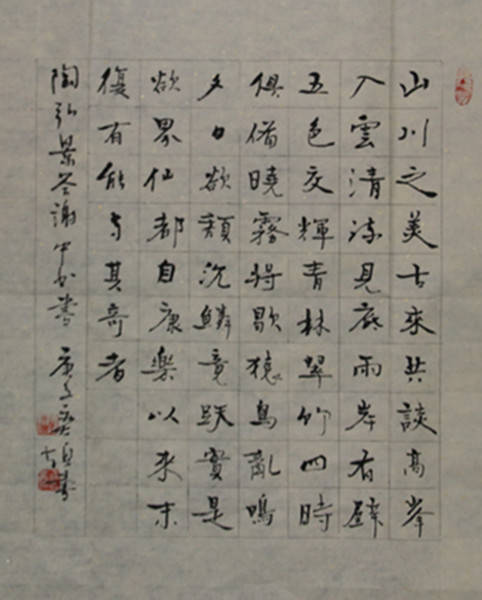 山川之美古來共談高峯
入雲清流見底兩岸有壁
五色交輝青林翠竹四時
俱備曉霧將歇猿鳥亂鳴
夕日欲頹沉鱗竞跃實是
欲界仙都自康樂以來未
復有能与其奇者
陶弘景答謝中書 庚子